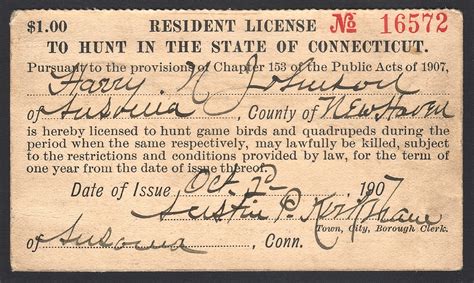 $1.00 RESIDENT LICENSE № 16572
TO HUNT IN THE STATE OF CONNECTICUT.
Pursuant to the provisions of Chapter 153 of the Public Acts of 1907,
Harry N Johnson
of Ansonia, County of New Haven
is hereby licensed to hunt game birds and quadrupeds during the
period when the same respectively, may lawfully be killed, subject
to the restrictions and conditions provided by law, for the term of
one year from the date of issue thereof.
Date of Issue, Oct 2d 1907
Austin P. Kirkham
Town, City, Borough Clerk.
of Ansonia, Conn.